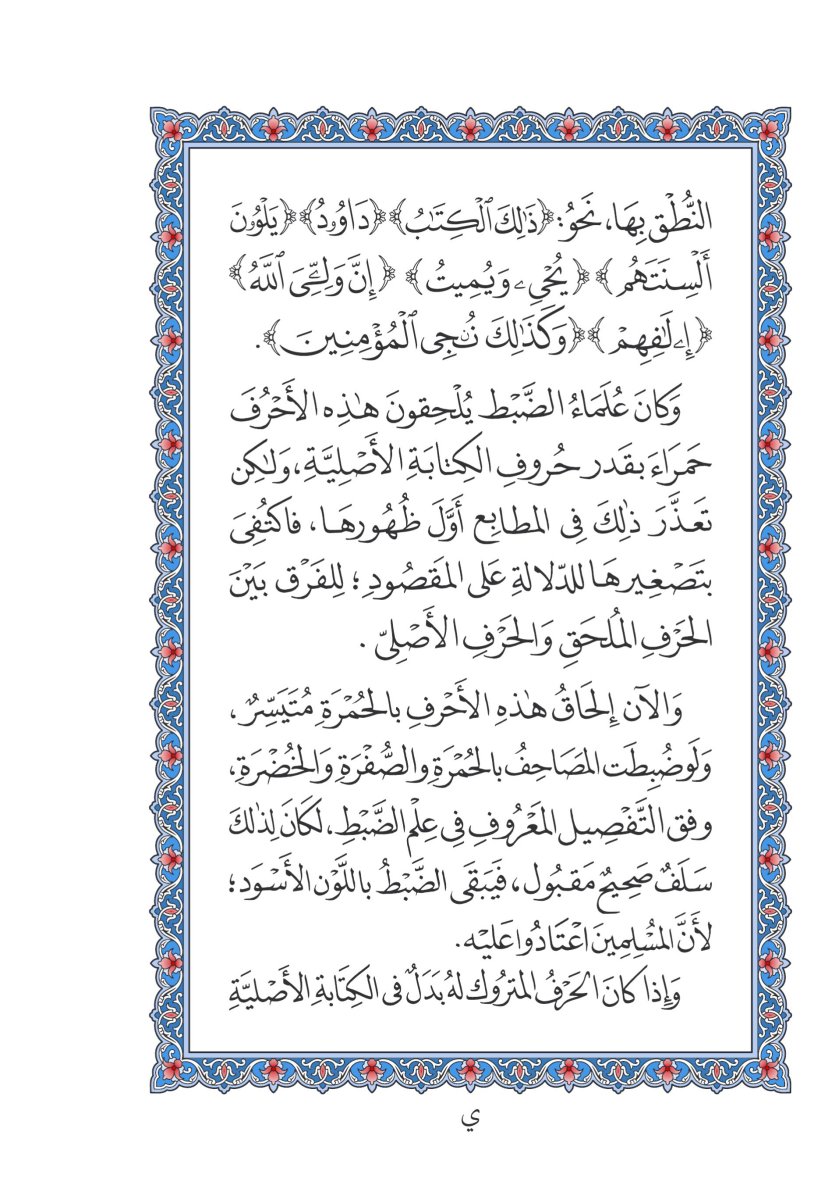 النُّطْقِ بِهَا، نَحْوُ: ﴿ذَٰلِكَ ٱلْكِتَٰبُ﴾ ﴿دَاوُۥدُ﴾ ﴿يَلْوُۥنَ
أَلْسِنَتَهُم﴾ ﴿يُحْيِۦ وَيُمِيتُ﴾ ﴿إِنَّ وَلِـِّۧيَ ٱللَّهُ﴾
﴿إِۦلَٰفِهِمْ﴾ ﴿وَكَذَٰلِكَ نُـۨجِي ٱلْمُؤْمِنِينَ﴾.
وَكَانَ عُلَمَاءُ الضَّبْطِ يُلْحِقُونَ هَٰذِهِ الأَحْرُفَ
حَمْرَاءَ بِقَدْرِ حُرُوفِ الكِتَابَةِ الأَصْلِيَّةِ، وَلَٰكِن
تَعَذَّرَ ذَٰلِكَ فِي المَطَابِعِ أَوَّلَ ظُهُورِهَا، فَاكْتُفِيَ
بِتَصْغِيرِهَا لِلدِّلَالَةِ عَلَى المَقْصُودِ؛ لِلفَرْقِ بَيْنَ
الحَرْفِ المُلْحَقِ وَالحَرْفِ الأَصْلِيِّ.
وَالآنَ إِلْحَاقُ هَٰذِهِ الأَحْرُفِ بِالحُمْرَةِ مُتَيَسِّرٌ،
وَلَوْ ضُبِطَتِ المَصَاحِفُ بِالحُمْرَةِ وَالصُّفْرَةِ وَالخُضْرَةِ،
وَفْقَ التَّفْصِيلِ المَعْرُوفِ فِي عِلْمِ الضَّبْطِ، لَكَانَ لِذَٰلِكَ
سَلَفٌ صَحِيحٌ مَقْبُولٌ، فَيَبْقَى الضَّبْطُ بِاللَّوْنِ الأَسْوَدِ؛
لِأَنَّ المُسْلِمِينَ اعْتَادُوا عَلَيْهِ.
وَإِذَا كَانَ الحَرْفُ المَتْرُوكُ لَهُ بَدَلٌ فِي الكِتَابَةِ الأَصْلِيَّةِ
ي